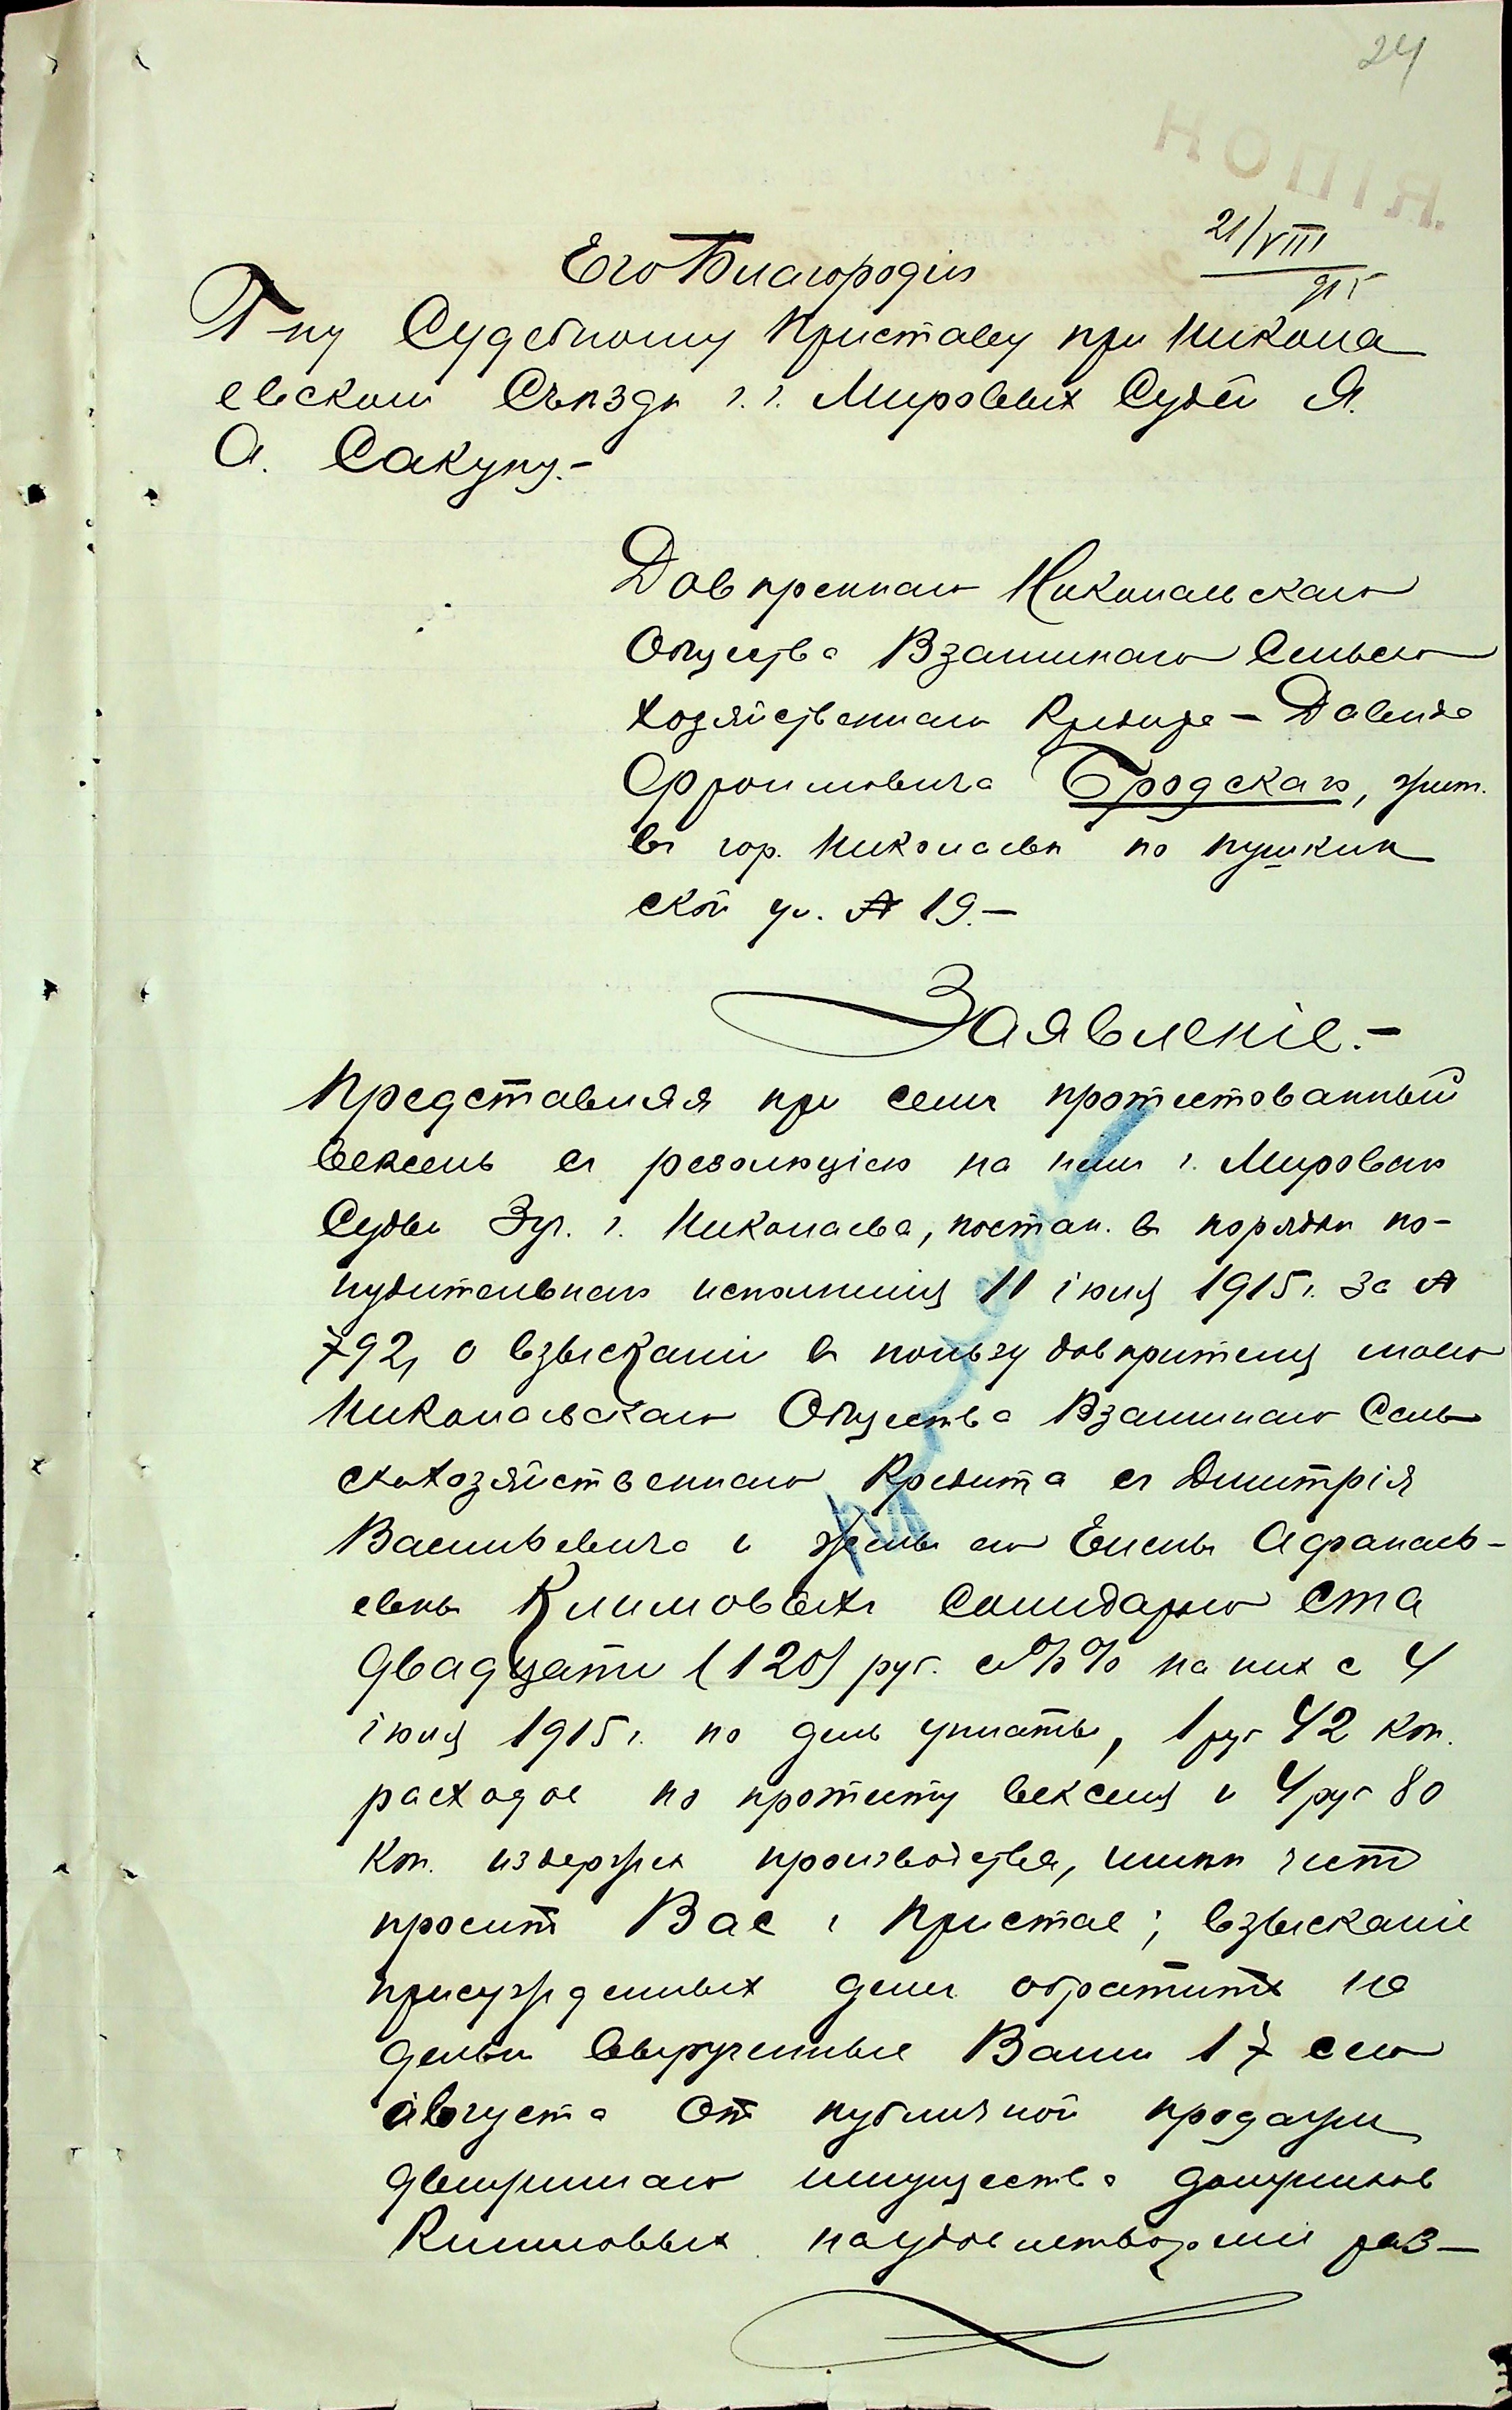 24
КОПІЯ
21/VIII
915
Его Благородію
Г-ну Судебному Приставу при Никола
евском Съѣздѣ г.г. Мировых Судей Я.
А. Сакуну.-
Довѣреннаго Николаевскаго
Общества Взаимнаго Сельско
хозяйственнаго Кредита - Давида
Бродскаго, жит.
въ гор. Николаевѣ по Пушкин
ской ул. № 19.-
Заявленіе.-
Представляя при семъ протестованный
вексель съ резолюціею на нем г. Мирового
Судьи 3 уч. г. Николаева, постан. в порядкѣ по-
нудительнаго исполненія 11 іюля 1915 г. за №
792, о взысканіи в пользу довѣрителя моего
Николаевскаго Общества Взаимнаго Сель
скохозяйственнаго Кредита съ Дмитрія
Васильевича и жены его Елены Афанась-
евны Климовыхъ солидарно ста
двадцати (120) руб. с %% на них с 4
іюля 1915 г. по день уплаты, 1 руб 42 коп.
расходов по протесту векселя и 4 руб 80
коп. издержек производства, имѣю честь
просить Вас г. Пристав; взысканіе
присужденных денег обратить на
деньги вырученные Вами 17 сего
августа от публичной продажи
движимаго имущества должников
Климовых на удовлетвореніе раз-